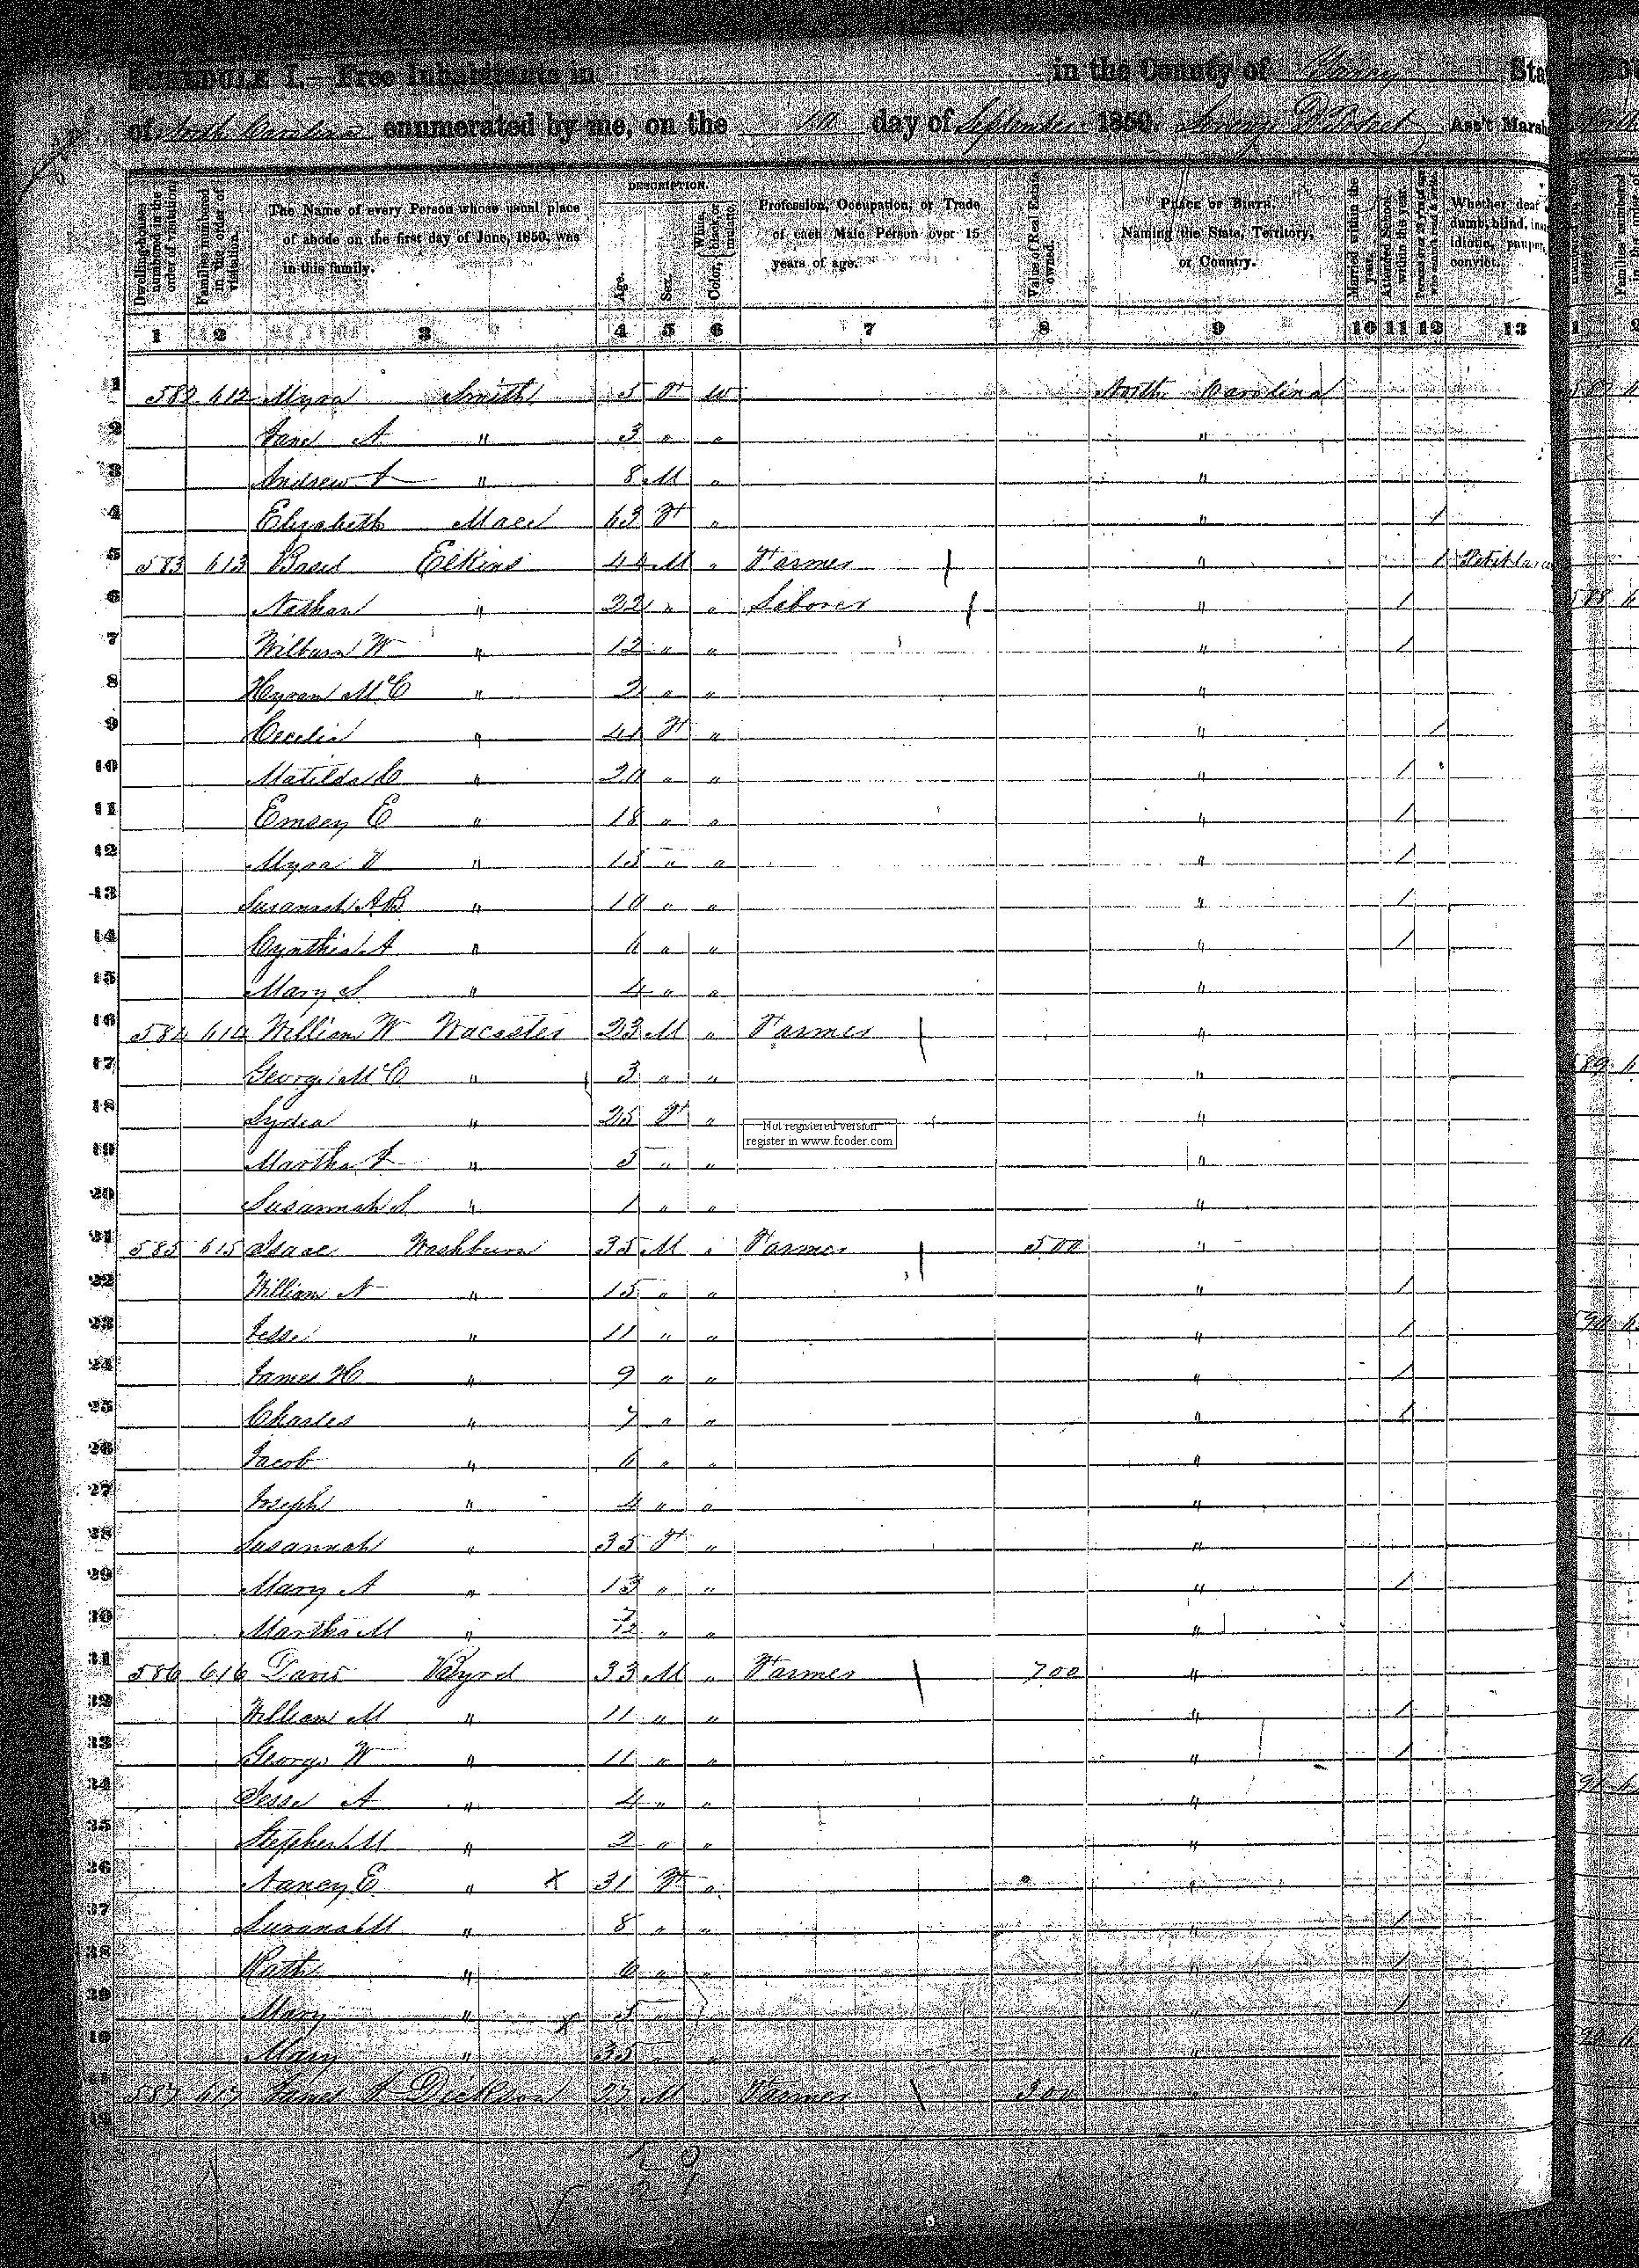 SCHEDULE I.—Free Inhabitants in in the County of Sta
of North Carolina enumerated by me, on the 10 day of September 1850. Ass't Marsh
Dwelling-houses numbered in the order of visitation.
Families numbered in the order of visitation.
The Name of every Person whose usual place of abode on the first day of June, 1850, was in this family.
DESCRIPTION.
Age.
Sex.
Color, White, black, or mulatto.
Profession, Occupation, or Trade of each Male Person over 15 years of age.
Value of Real Estate owned.
PLACE OF BIRTH. Naming the State, Territory, or Country.
Married within the year.
Attended School within the year.
Persons over 20 y'rs of age who cannot read & write.
Whether deaf & dumb, blind, insa idiotic, pauper, convict.
1 2 3 4 5 6 7 8 9 10 11 12 13
1 582 612 Myra Smith 5 F W North Carolina
2 Jane A " 3 " " "
3 Andrew " 8 M " "
4 Elizabeth Mace 63 F " " 1
5 583 613 Basil Elkins 44 M " Farmer " 1
6 Nathan " 22 " " Laborer " 1
7 Wilburn W " 12 " " " 1
8 Hyram McC " 2 " " "
9 Cecelia " 41 F " " 1
10 Matilda C " 20 " " " 1
11 Emsey E " 18 " " " 1
12 Myra " 15 " " " 1
13 Susannah AB " 10 " " " 1
14 Cynthia A " 6 " " " 1
15 Mary S " 4 " " "
16 584 614 William W Wacaster 23 M " Farmer "
17 George McC " 3 " " "
18 Lydia " 25 F " "
Not registered version
register in www.fcoder.com
19 Martha " 5 " " "
20 Susannah S " 1 " " "
21 585 615 Isaac Washburn 35 M " Farmer 500 "
22 William A " 15 " " " 1
23 Jesse " 11 " " " 1
24 James H " 9 " " " 1
25 Charles " 7 " " " 1
26 Jacob " 6 " " "
27 Joseph " 4 " " "
28 Susannah " 35 F " "
29 Mary A " 13 " " " 1
30 Martha M " 7/12 " " "
31 586 616 Davis Byrd 33 M " Farmer 700 "
32 William M " 11 " " " 1
33 George W " 11 " " " 1
34 Jesse A " 4 " " "
35 Stephen M " 2 " " "
36 Nancy E " X 31 F " "
37 Susana M " 8 " " " 1
38 Ruth " 6 " " " 1
39 Mary " 5 " " " 1
40 Mary " X 35 " " "
41 587 617 James A Dickson 27 M " Farmer 200 "
42